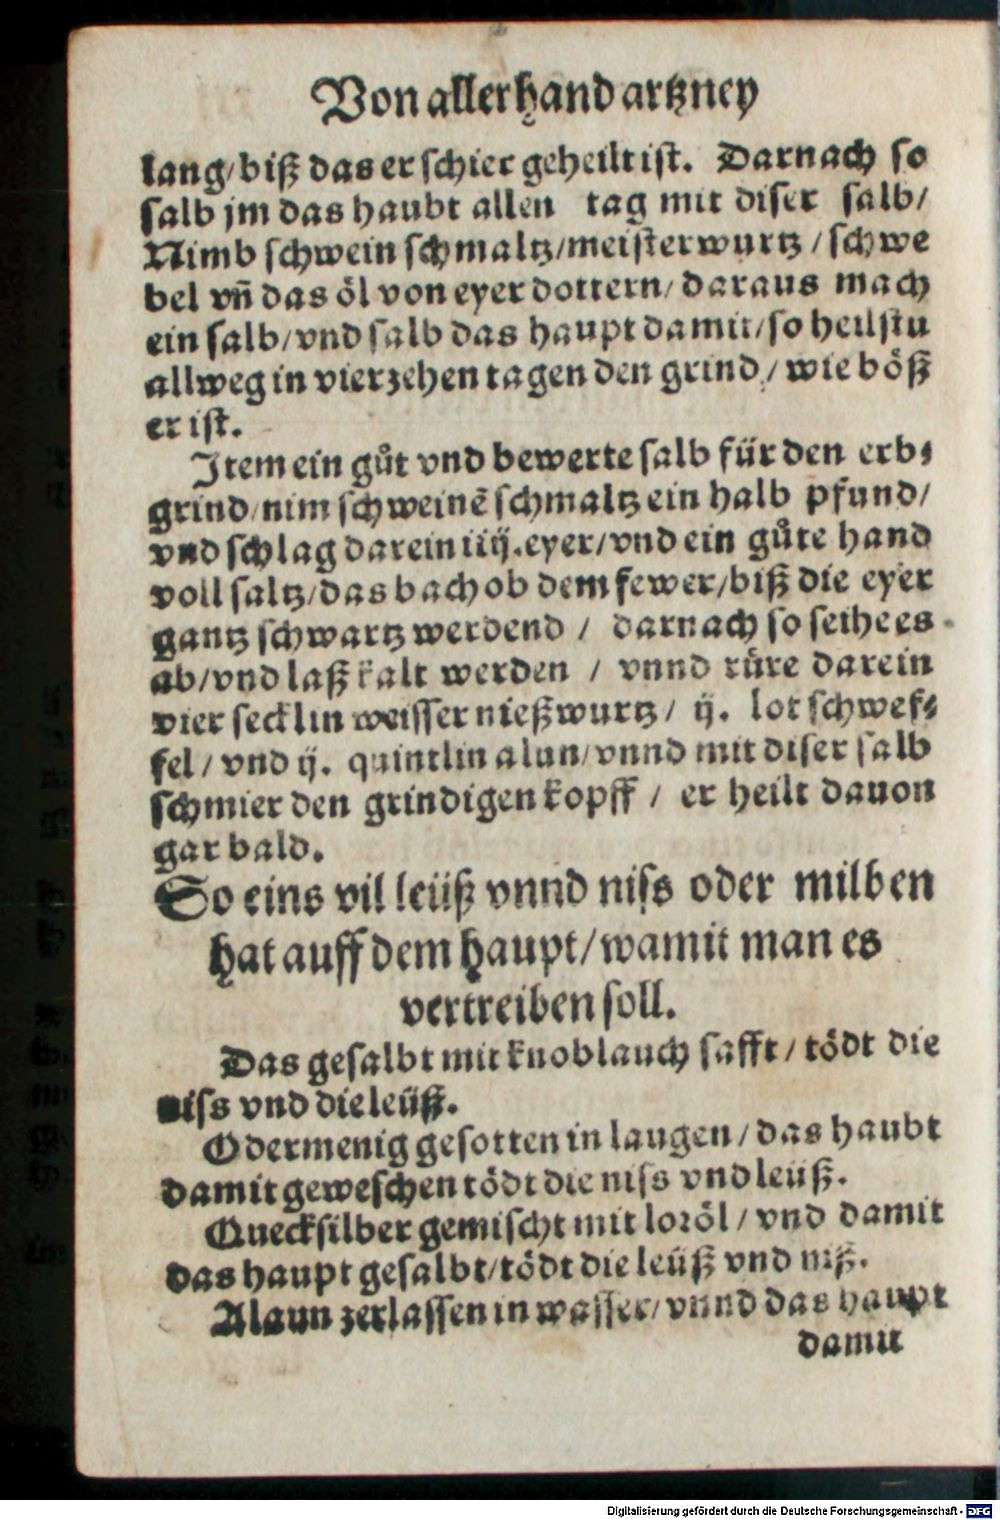 Von allerhand artzney
lang/ biß das er schier geheilt ist. Darnach so
salb jm das haubt allen tag mit diser salb/
Nimb schwein schmaltz/ meisterwurtz / schwe
bel vñ das öl von eyer dottern/ daraus mach
ein salb/ vnd salb das haupt damit/ so heilstu
allweg in vierzehen tagen den grind / wie böß
er ist.
Item ein gůt vnd bewerte salb für den erb⸗
grind/ nim schweinẽ schmaltz ein halb pfund/
vnd schlag darein iiij. eyer/ vnd ein gůte hand
voll saltz/ das bach ob dem fewer/ biß die eyer
gantz schwartz werdend / darnach so seihe es
ab/ vnd laß kalt werden / vnnd rüre darein
vier secklin weisser nießwurtz/ ij. lot schwef⸗
fel / vnd ij. quintlin alun/ vnnd mit diser salb
schmier den grindigen kopff / er heilt dauon
gar bald.
So eins vil leüß vnnd niss oder milben
hat auff dem haupt/ wamit man es
vertreiben soll.
Das gesalbt mit knoblauch safft / tödt die
niss vnd die leüß.
Odermenig gesotten in laugen / das haubt
damit geweschen tödt die niss vnd leüß.
Quecksilber gemischt mit loröl / vnd damit
das haupt gesalbt/ tödt die leüß vnd niß.
Alaun zerlassen in wasser/ vnnd das haupt
damit
Digitalisierung gefördert durch die Deutsche Forschungsgemeinschaft - DFG